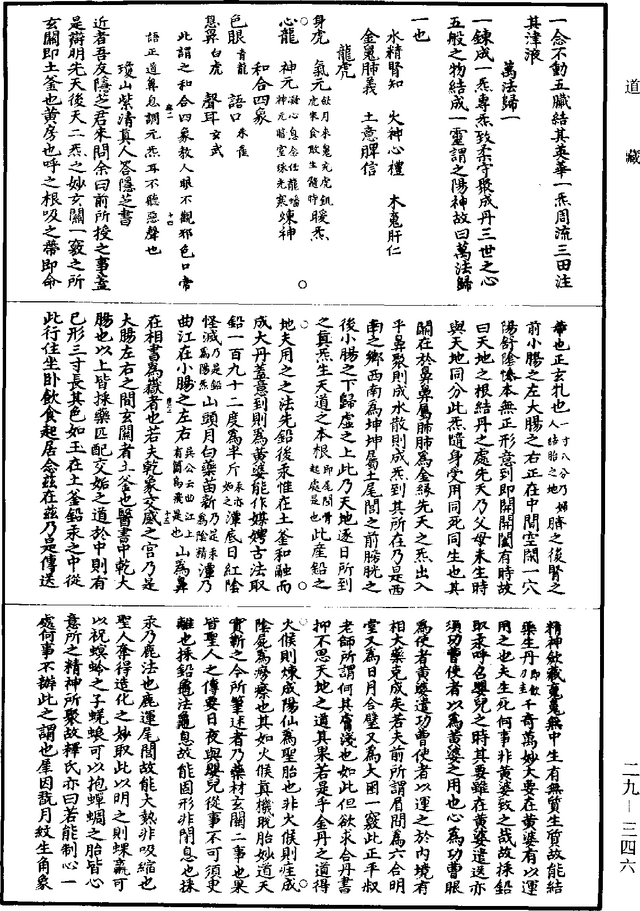 道藏
一念不動五臟結其英華一炁周流三田注
其津液
萬法歸一
一鍊成一炁專炁致柔守聚成丹三世之心
五般之物結成一靈謂之陽神故曰萬法歸
一也
水精腎知 火神心禮 木䰟肝仁
金䰟肺義 土意脾信
龍虎
身虎 氣元
心龍 神元 煉神
和合四象
色眼青龍 語口朱雀
息鼻白虎 聲耳玄武
此謂之和合四象教人眼不觀邪色口常
語正道鼻息調元炁耳不聽惡聲也
瓊山紫清真人答隱芝書
近者吾友隱芝君來問余曰前所授之事蓋
是辯明先天後天二炁之妙玄關一竅之所
玄關即土釜也黃房也呼之根吸之蒂即命
蒂也正玄牝也一寸八分乃婦人結胎之地臍之後腎之
前小腸之左大腸之右正在中間空閑一穴
陽舒陰慘本無正形意到即開開闔有時故
曰天地之根結丹之處先天乃父母未生時
與天地同分此炁隨身受用同死同生也其
關在於鼻鼻屬肺肺為金緣先天之炁出入
乎鼻聚則成水散則成炁到其所在乃是西
南之鄉西南為坤坤屬土尾閭之前膀胱之
後小腸之下歸虛之上此乃天地逐日所到
之真炁生天道之本根即尾閭骨起處是也此産鉛之
地夫用之之法先鉛後汞惟在土釜和融而
成大丹蓋意到則為黃婆能作媒娉古法取
鉛一百九十二度為半斤汞如之渾底日紅陰
怪滅乃是鉛為陽炁山頭月白藥苗新乃是汞為陰精潭乃
曲江在小腸之左右吳公云曲江上有鸛為飛是也山為鼻
在相書為嶽者也若夫乾象交感之宮乃是
大腸左右之間玄關者土釜也醫書中乾大
腸也以上皆採藥匹配交姤之道於中則有
已形三寸長其色如玉在土釜鉛汞之中從
此行住坐卧飲食起居念茲在茲乃是傳送
精神斂藏䰟䰟無中生有無質生質故能結
藥生丹千奇萬妙大要在黃婆有以運
用之也夫生死何事非黃婆致之哉故採鉛
取汞呼召嬰兒之時其要雖在黃婆遣送亦
須功曹使者以為黃婆之用也心為功曹眼
為使者黃婆遣功曹使者以運之於內境有
相大藥克成矣若夫前所謂眉間為六合明
堂又為日月合璧又為大囷一竅此正平叔
老師所謂何其膚淺也如此但欲求合丹書
抑不思天地之道其果若是乎金丹之道得
火候則煉成陽仙為聖胎也非火候則汪成
陰屍為癆瘵也其如火候真機脫胎妙道天
實靳之今所筆述者乃藥材玄關二事也果
皆聖人之傳要日夜與嬰兒從事不可須臾
離也採鉛龜法龜息故能固形非閉息也採
汞乃鹿法也鹿運尾閭故能大熱非吸縮也
聖人奪得造化之妙取此以明之則蜾蠃可
以祝螟蛉之子蜣蜋可以抱蟬蜩之胎皆心
意所之精神所聚故釋氏亦曰若能制心一
處何事不辦此之謂也犀因翫月紋生角象
二九-三四六